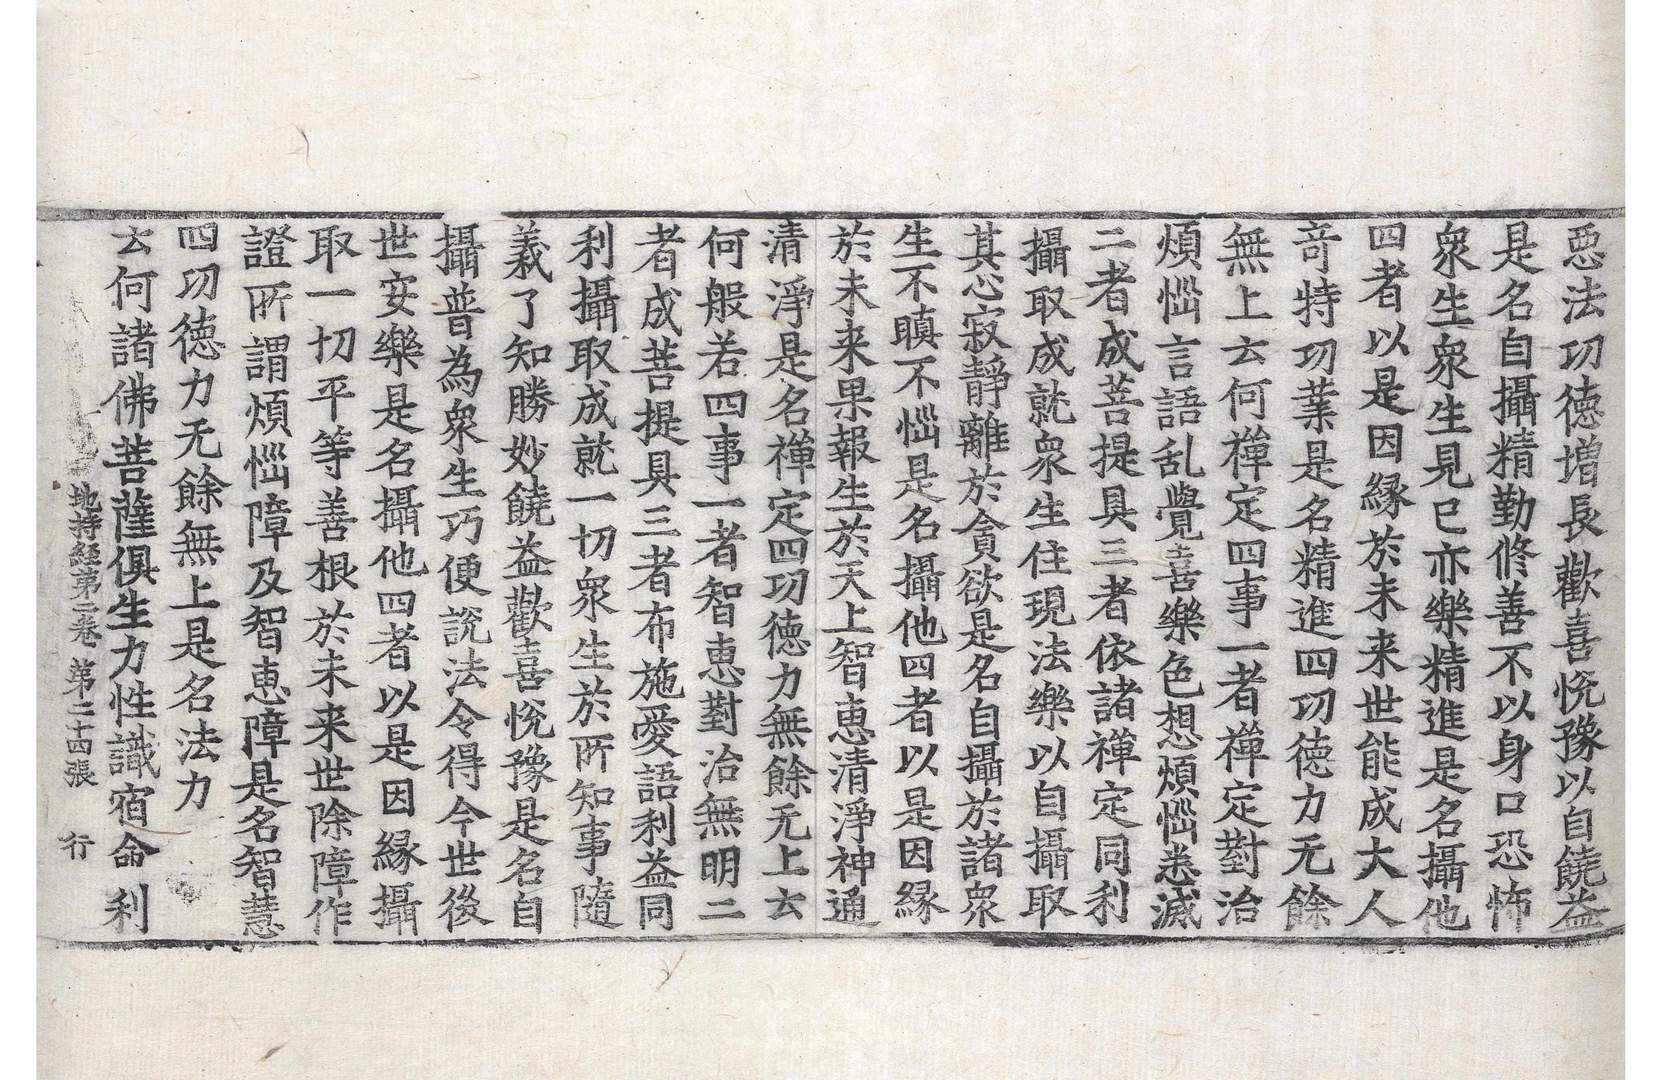 惡法功德增長歡喜悅豫以自饒益
是名自攝精勤修善不以身口恐怖
衆生衆生見已亦樂精進是名攝他
四者以是因縁於未来世能成大人
竒特功業是名精進四功德力无餘
無上云何禪定四事一者禪定對治
煩惱言語乱覺喜樂色想煩惱悉滅
二者成菩提具三者依諸禪定同利
攝取成就衆生住現法樂以自攝取
其心寂靜離於貪欲是名自攝於諸衆
生不瞋不惱是名攝他四者以是因縁
於未来果報生於天上智恵清淨神通
清淨是名禪定四功德力無餘无上云
何般若四事一者智恵對治無明二
者成菩提具三者布施愛語利益同
利攝取成就一切衆生於所知事隨
義了知勝妙饒益歡喜悅豫是名自
攝普為衆生巧便說法令得今世後
世安樂是名攝他四者以是因縁攝
取一切平等善根於未来世除障作
證所謂煩惱障及智恵障是名智慧
四功德力无餘無上是名法力
云何諸佛菩薩俱生力性識宿命利
地持経第二巻 第二十四張 行